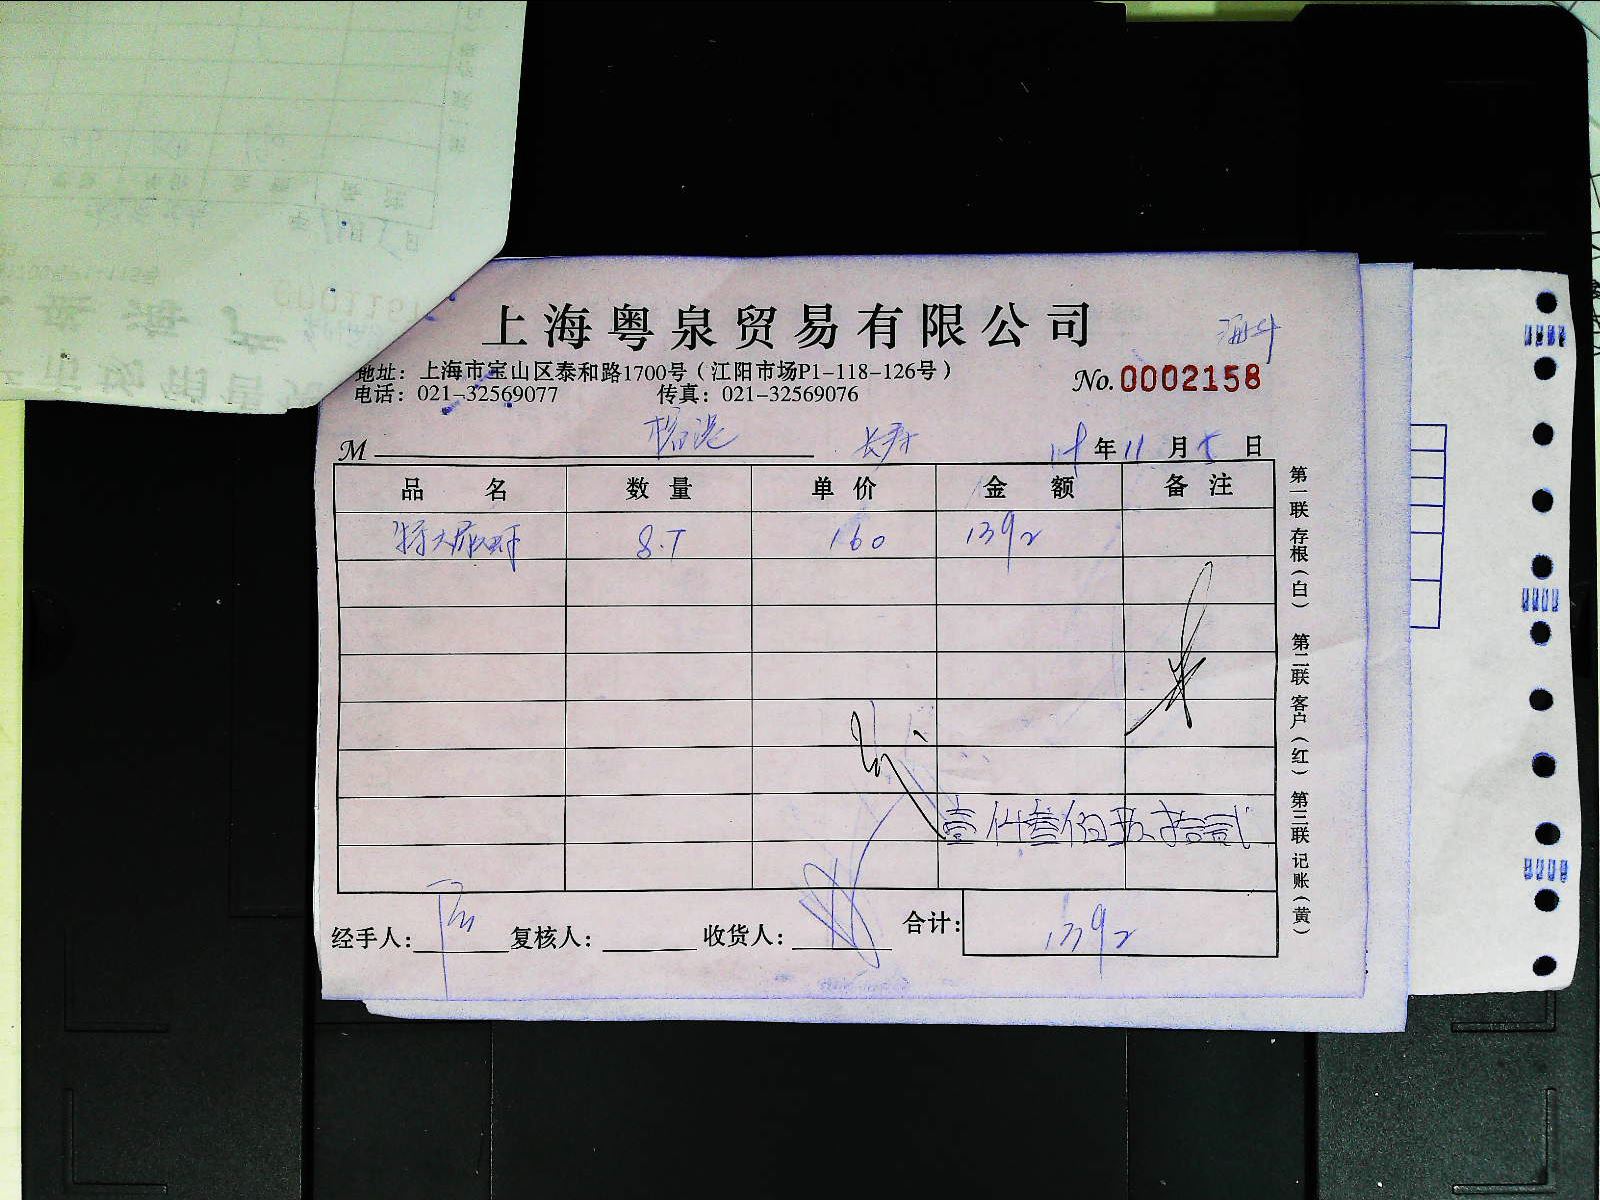 上海粤泉贸易有限公司
地址：上海市宝山区泰和路1700号（江阳市场P1-118-126号）
No.0002158
电话：021-32569077 传真：021-32569076
M 年 11 月 日
品 名 数 量 单 价 金 额 备 注
特大 160 1392
壹仟叁佰玖拾贰
经手人： 复核人： 收货人： 合计： 1392
第一联 存根（白） 第二联 客户（红） 第三联 记账（黄）